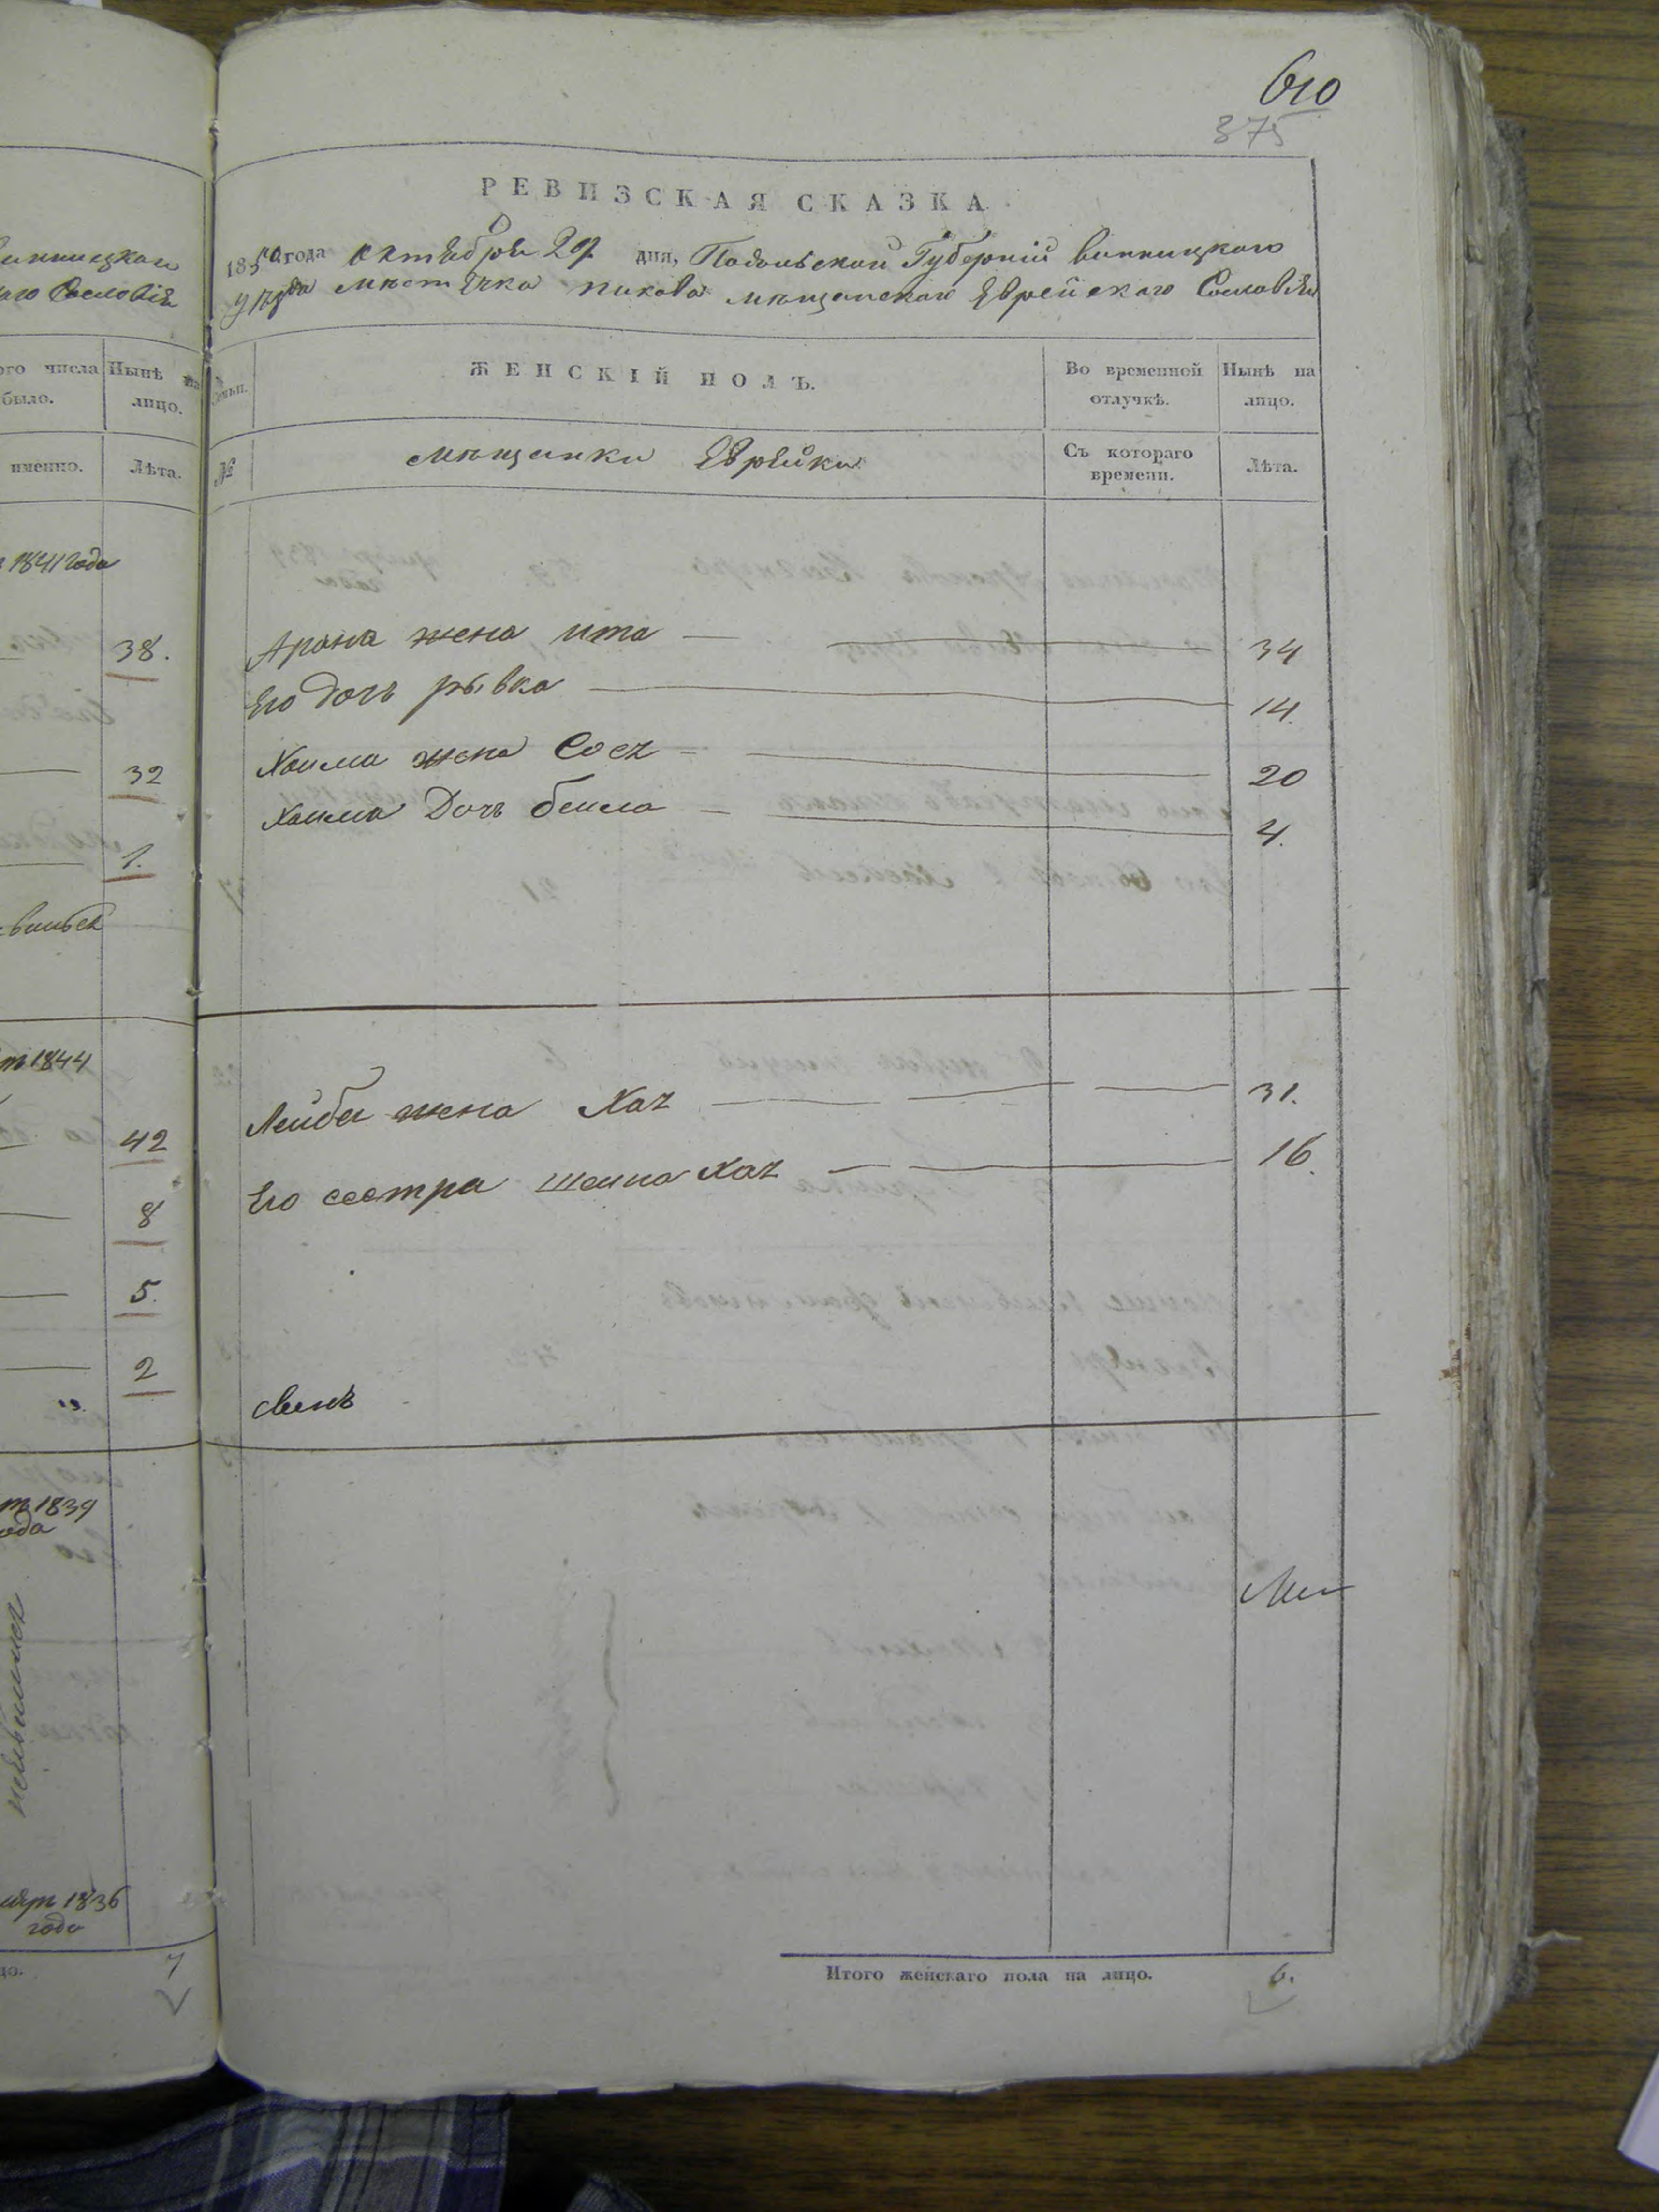 610
375
РЕВИЗСКАЯ СКАЗКА
1850 года октября 29 дня, Подольской Губерніи винницкого
уѣзда мѣстечка пикова мѣщанскаго Еврейскаго Сословія
ого числа
было.
Нынѣ на
лицо.
ЖЕНСКІЙ ПОЛЪ.
Во временной
отлучкѣ.
Нынѣ на
лицо.
именно.
Лѣта.
№
мѣщанки Еврейки
Съ котораго
времени.
Лѣта.
1841 года
38.
32
1.
Арона жена ита 34
Его дочь рывка 14.
Хаима жена Сося 20
Хаима Дочь беила 4.
1844
42
8
5.
2
Лейбы жена Хая 31.
Его сестра шеина Хая 16.
1839
ода
1836
года
7
Итого женскаго пола на лицо. 6.